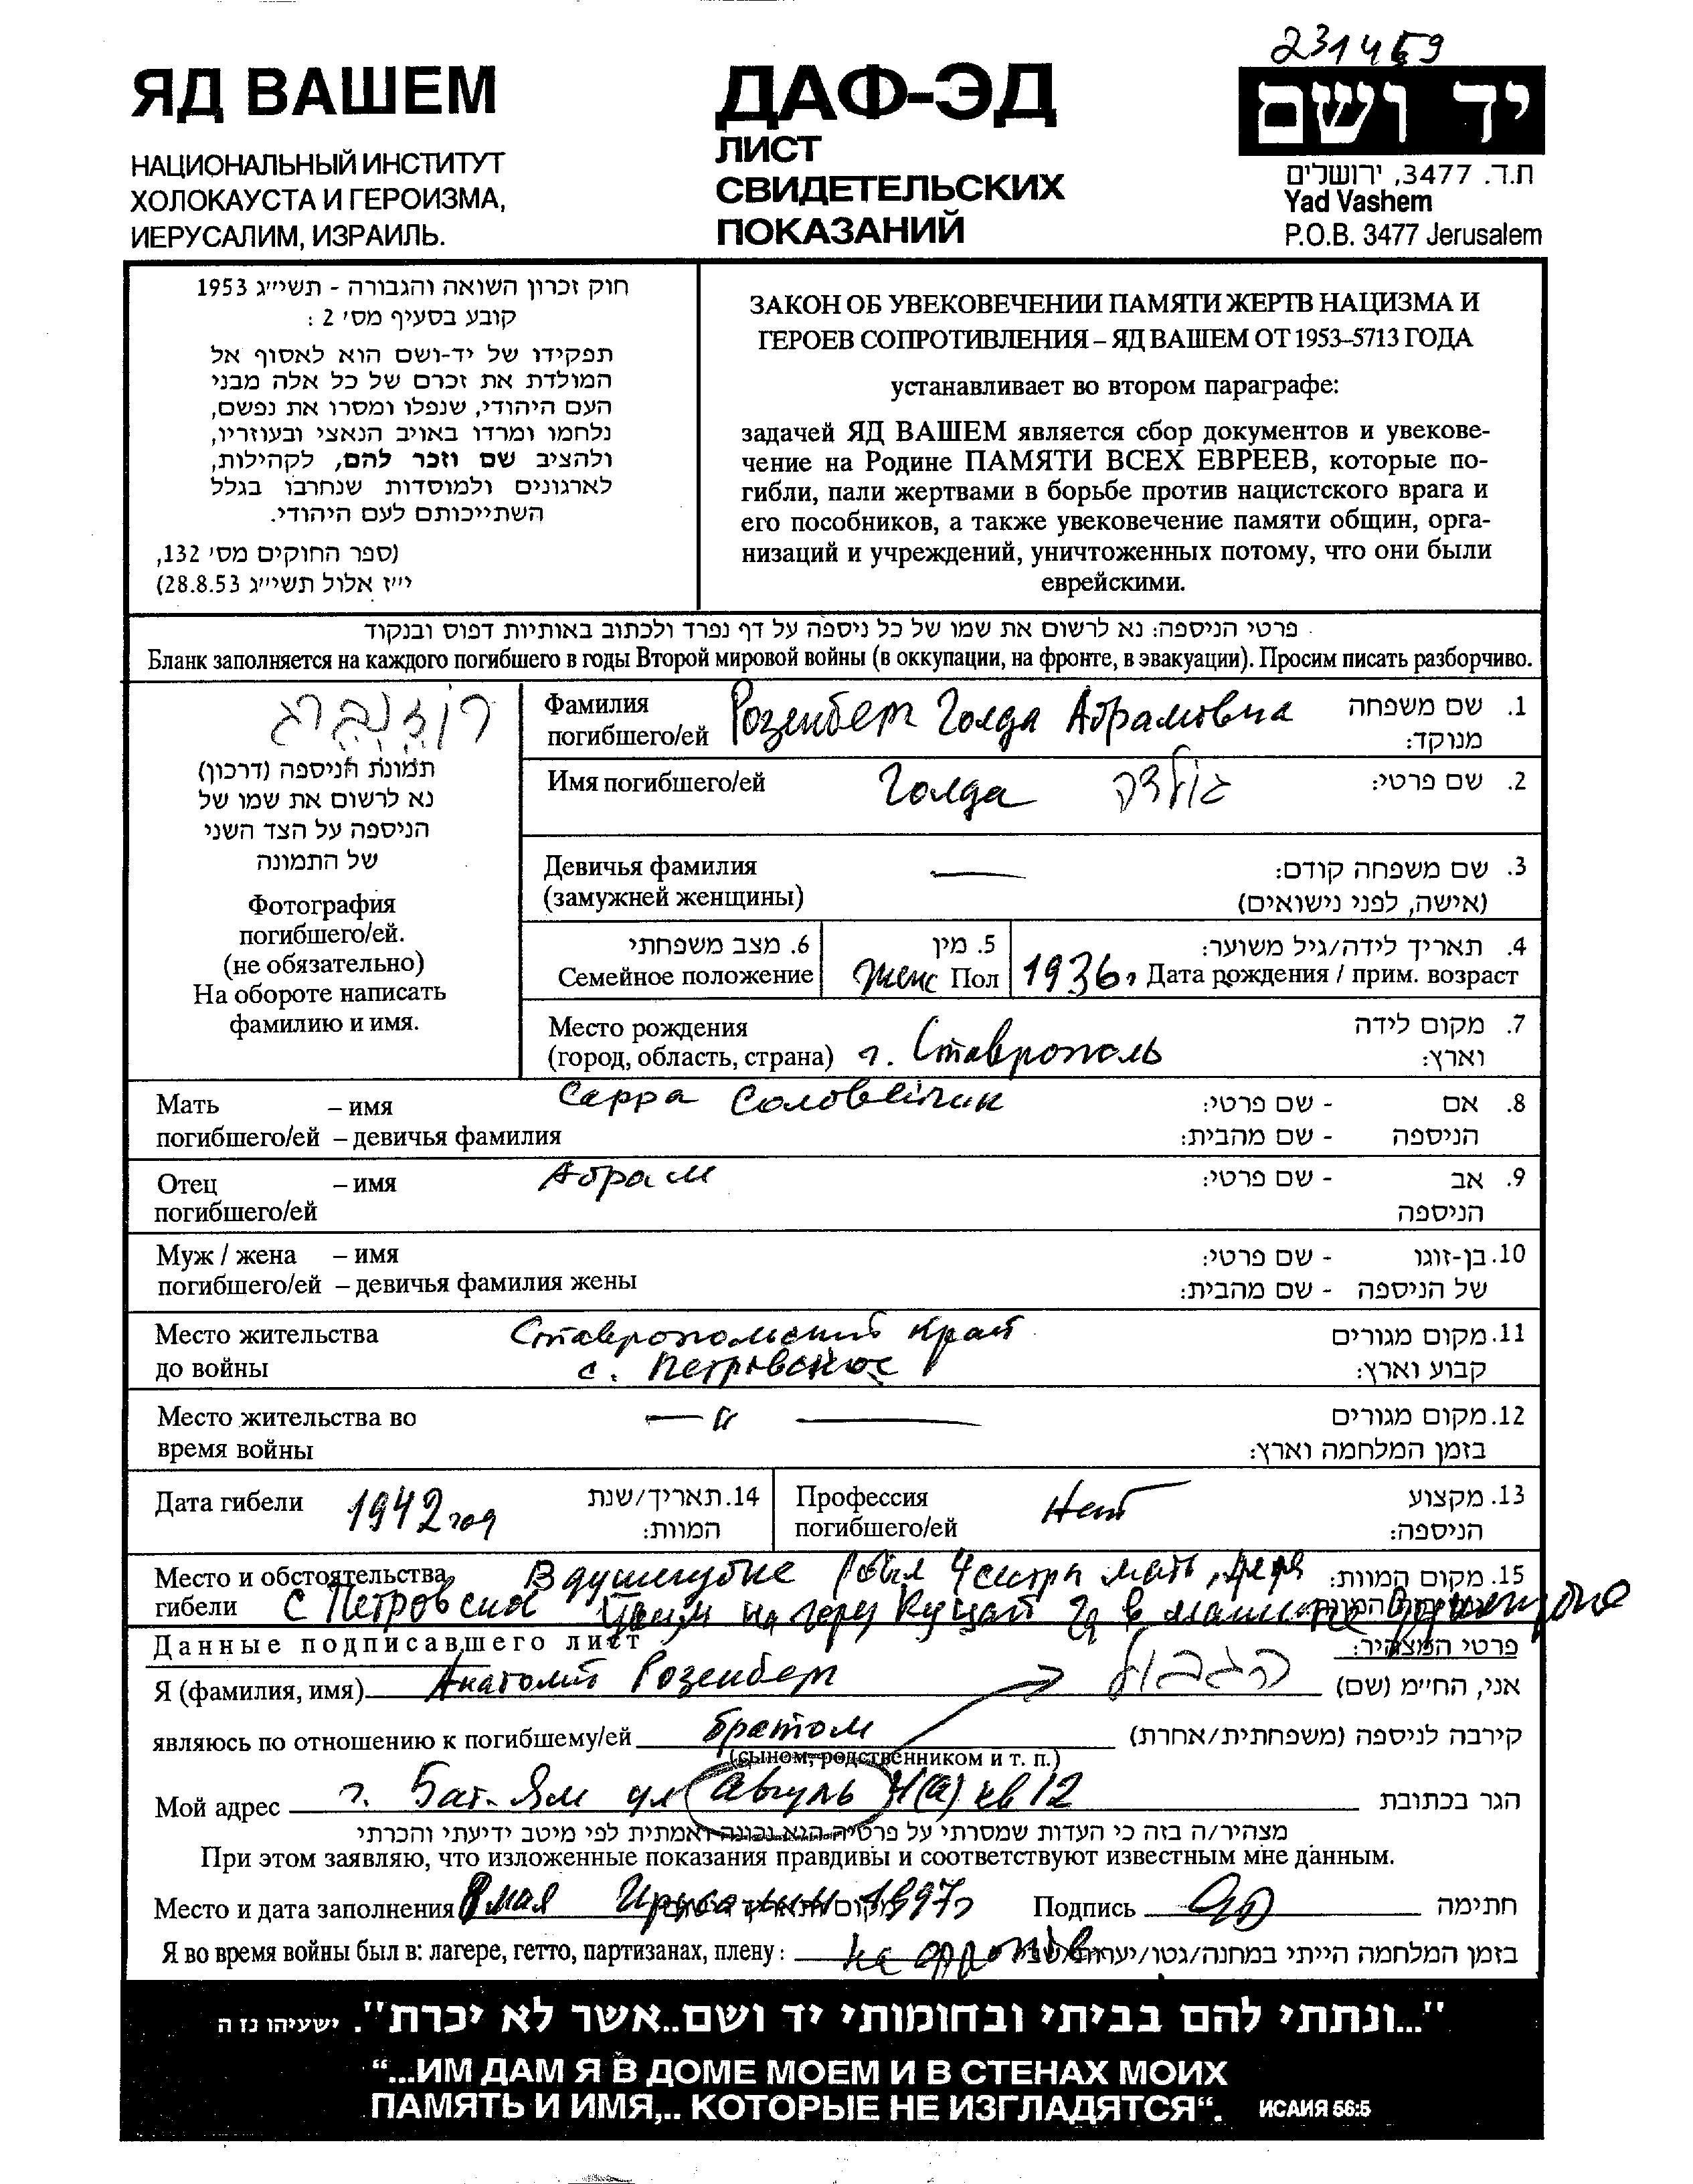 231459
ЯД ВАШЕМ
НАЦИОНАЛЬНЫЙ ИНСТИТУТ
ХОЛОКАУСТА И ГЕРОИЗМА,
ИЕРУСАЛИМ, ИЗРАИЛЬ.
ДАФ-ЭД
ЛИСТ
СВИДЕТЕЛЬСКИХ
ПОКАЗАНИЙ
יד ושם
ת.ד. 3477, ירושלים
Yad Vashem
P.O.B. 3477 Jerusalem
חוק זכרון השואה והגבורה - תשי״ג 1953
קובע בסעיף מס׳ 2 :
תפקידו של יד-ושם הוא לאסוף אל
המולדת את זכרם של כל אלה מבני
העם היהודי, שנפלו ומסרו את נפשם,
נלחמו ומרדו באויב הנאצי ובעוזריו,
ולהציב שם וזכר להם, לקהילות,
לארגונים ולמוסדות שנחרבו בגלל
השתייכותם לעם היהודי.
(ספר החוקים מס׳ 132,
י״ז אלול תשי״ג 28.8.53)
ЗАКОН ОБ УВЕКОВЕЧЕНИИ ПАМЯТИ ЖЕРТВ НАЦИЗМА И
ГЕРОЕВ СОПРОТИВЛЕНИЯ – ЯД ВАШЕМ ОТ 1953–5713 ГОДА
устанавливает во втором параграфе:
задачей ЯД ВАШЕМ является сбор документов и увекове-
чение на Родине ПАМЯТИ ВСЕХ ЕВРЕЕВ, которые по-
гибли, пали жертвами в борьбе против нацистского врага и
его пособников, а также увековечение памяти общин, орга-
низаций и учреждений, уничтоженных потому, что они были
еврейскими.
פרטי הניספה: נא לרשום את שמו של כל ניספה על דף נפרד ולכתוב באותיות דפוס ובנקוד
Бланк заполняется на каждого погибшего в годы Второй мировой войны (в оккупации, на фронте, в эвакуации). Просим писать разборчиво.
רוזנברג
תמונת הניספה (דרכון)
נא לרשום את שמו של
הניספה על הצד השני
של התמונה
Фотография
погибшего/ей.
(не обязательно)
На обороте написать
фамилию и имя.
Фамилия Розенберг Голда Абрамовна 1. שם משפחה
погибшего/ей מנוקד:
Имя погибшего/ей Голда גולדה 2. שם פרטי:
Девичья фамилия — 3. שם משפחה קודם:
(замужней женщины) (אישה, לפני נישואים)
6. מצב משפחתי 5. מין 4. תאריך לידה/גיל משוער:
Семейное положение женс Пол 1936г Дата рождения / прим. возраст
Место рождения 7. מקום לידה
(город, область, страна) г. Ставрополь וארץ:
Сарра Соловейчик
Мать – имя 8. אם - שם פרטי:
погибшего/ей – девичья фамилия הניספה - שם מהבית:
Отец – имя Абрам 9. אב - שם פרטי:
погибшего/ей הניספה
Муж / жена – имя 10. בן-זוגו - שם פרטי:
погибшего/ей – девичья фамилия жены של הניספה - שם מהבית:
Место жительства Ставропольский край 11. מקום מגורים
до войны с. Петровское קבוע וארץ:
Место жительства во — " — 12. מקום מגורים
время войны בזמן המלחמה וארץ:
Дата гибели 1942 год 14. תאריך/שנת המוות:
Профессия Нет 13. מקצוע
погибшего/ей הניספה:
Место и обстоятельства В душегубке 4 сестры мать, дядя 15. מקום המוות:
гибели с Петровское на в машине душегубке
Данные подписавшего лист פרטי המצהיר:
Я (фамилия, имя) Анатолий Розенберг הגבול אני, הח״מ (שם)
являюсь по отношению к погибшему/ей братом קירבה לניספה (משפחתית/אחרת)
(сыном, родственником и т. п.)
Мой адрес г. Бат-Ям ул Авгуль 4(а) кв 12 הגר בכתובת
מצהיר/ה בזה כי העדות שמסרתי על פרטיה היא נכונה ואמתית לפי מיטב ידיעתי והכרתי
При этом заявляю, что изложенные показания правдивы и соответствуют известным мне данным.
Место и дата заполнения 8 мая 1997г Подпись חתימה
Я во время войны был в: лагере, гетто, партизанах, плену: на фронте בזמן המלחמה הייתי במחנה/גטו/יערות/שבי
"...ונתתי להם בביתי ובחומותי יד ושם..אשר לא יכרת". ישעיהו נז ה
“...ИМ ДАМ Я В ДОМЕ МОЕМ И В СТЕНАХ МОИХ
ПАМЯТЬ И ИМЯ,.. КОТОРЫЕ НЕ ИЗГЛАДЯТСЯ“. ИСАИЯ 56:5